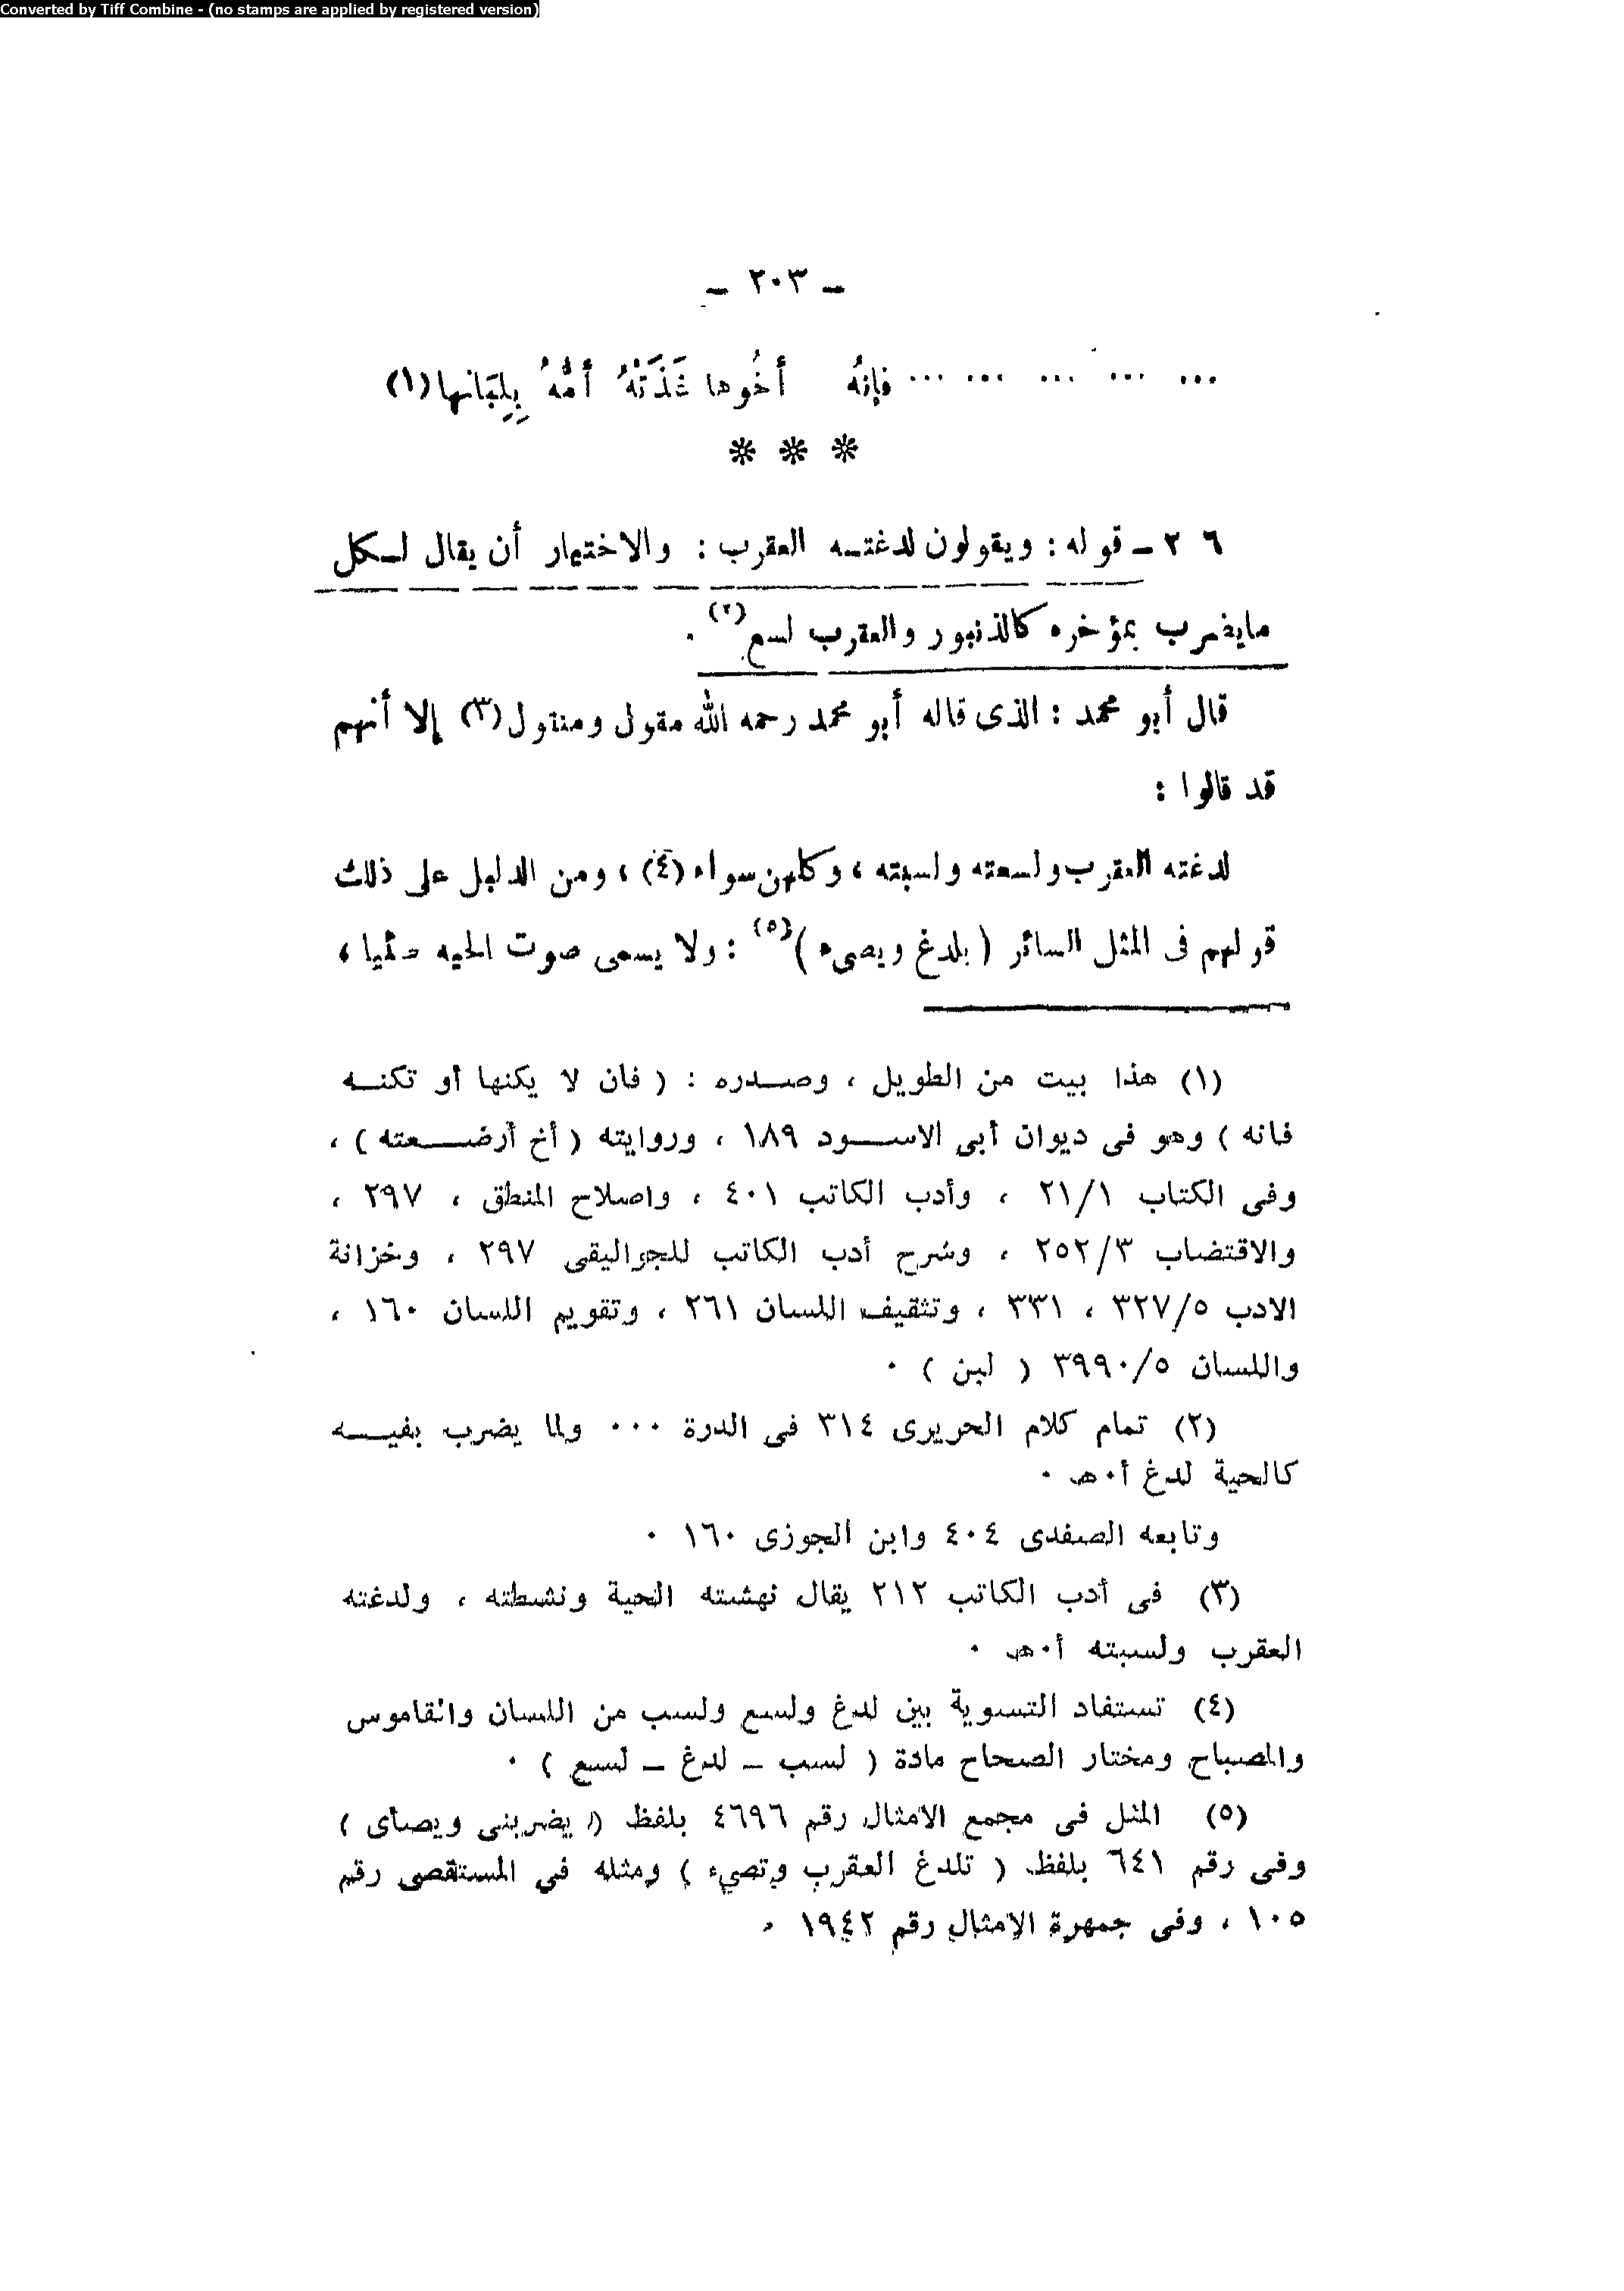 Converted by Tiff Combine - (no stamps are applied by registered version)
– ٢٠٣ –
... ... ... ... ... فإنهُ أخُوها غَذَتْهُ أمُّهُ بِلِبَانها(١)
* * *
٢٦ – قوله : ويقولون لدغتـه العقرب : والاختيار أن يقال لـكل
مايضرب بمؤخره كالذنبور والعقرب لسع(٢) .
قال أبو محمد : الذى قاله أبو محمد رحمه الله مقول ومنقول(٣) إلا أنهم
قد قالوا :
لدغته العقرب ولسعته ولسبته ، وكلهن سواء (٤) ، ومن الدليل على ذلك
قولهم فى المثل السائر ( يلدغ ويصىء )(٥) : ولا يسمى صوت الحيه ،
(١) هذا بيت من الطويل ، وصـدره : ( فان لا يكنها أو تكنـه
فانه ) وهو فى ديوان أبى الاسـود ١٨٩ ، وروايته ( أخ أرضـعته ) ،
وفى الكتاب ٢١/١ ، وأدب الكاتب ٤٠١ ، واصلاح المنطق ، ٢٩٧ ،
والاقتضاب ٢٥٢/٣ ، وشرح أدب الكاتب للجواليقى ٢٩٧ ، وخزانة
الادب ٣٢٧/٥ ، ٣٣١ ، وتثقيف اللسان ٢٦١ ، وتقويم اللسان ١٦٠ ،
واللسان ٣٩٩٠/٥ ( لبن ) ٠
(٢) تمام كلام الحريرى ٣١٤ فى الدرة ٠٠٠ ولما يضرب بفيـه
كالحية لدغ أ٠هـ ٠
وتابعه الصفدى ٤٠٤ وابن الجوزى ١٦٠ ٠
(٣) فى أدب الكاتب ٢١٢ يقال نهشته الحية ونشطته ، ولدغته
العقرب ولسبته أ٠هـ ٠
(٤) تستفاد التسوية بين لدغ ولسع ولسب من اللسان والقاموس
والمصباح ومختار الصحاح مادة ( لسب – لدغ – لسع ) ٠
(٥) المثل فى مجمع الامثال رقم ٤٦٩٦ بلفظ ( يضربنى ويصأى )
وفى رقم ٦٤١ بلفظ ( تلدغ العقرب وتصىء ) ومثله في المستقصى رقم
١٠٥ ، وفى جمهرة الامثال رقم ١٩٤٢ ٠